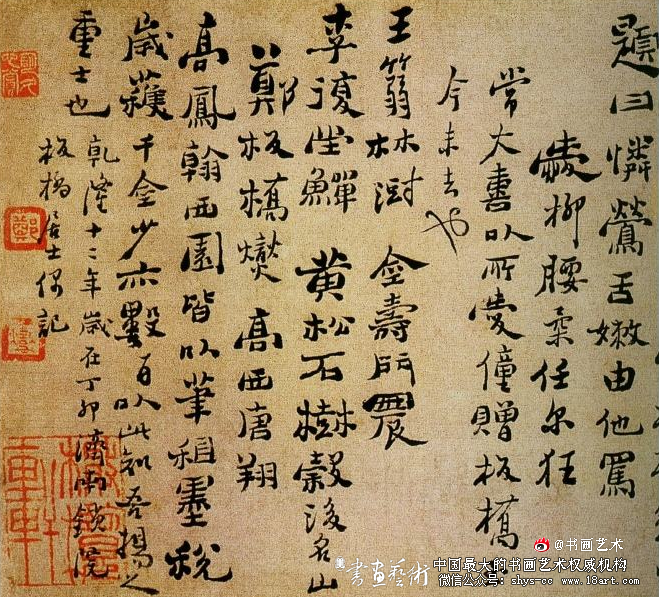 題曰憐鶯舌嫩由他罵
愛柳腰柔任尔狂
常大喜以所愛僮贈板橋
今未去也
王篛林澍 金壽門農
李復堂鱓 黄松石樹穀後名山
鄭板橋燮 高西唐翔
高鳳翰西園皆以筆租墨稅
歲穫千金少亦數百以此知吾揚之
重士也 乾隆十二年歲在丁卯濟南鎖院
板橋居士偶記
@书画艺术
書畫藝術 中国最大的书画艺术权威机构
微信公众号:shys-cc www.18art.com